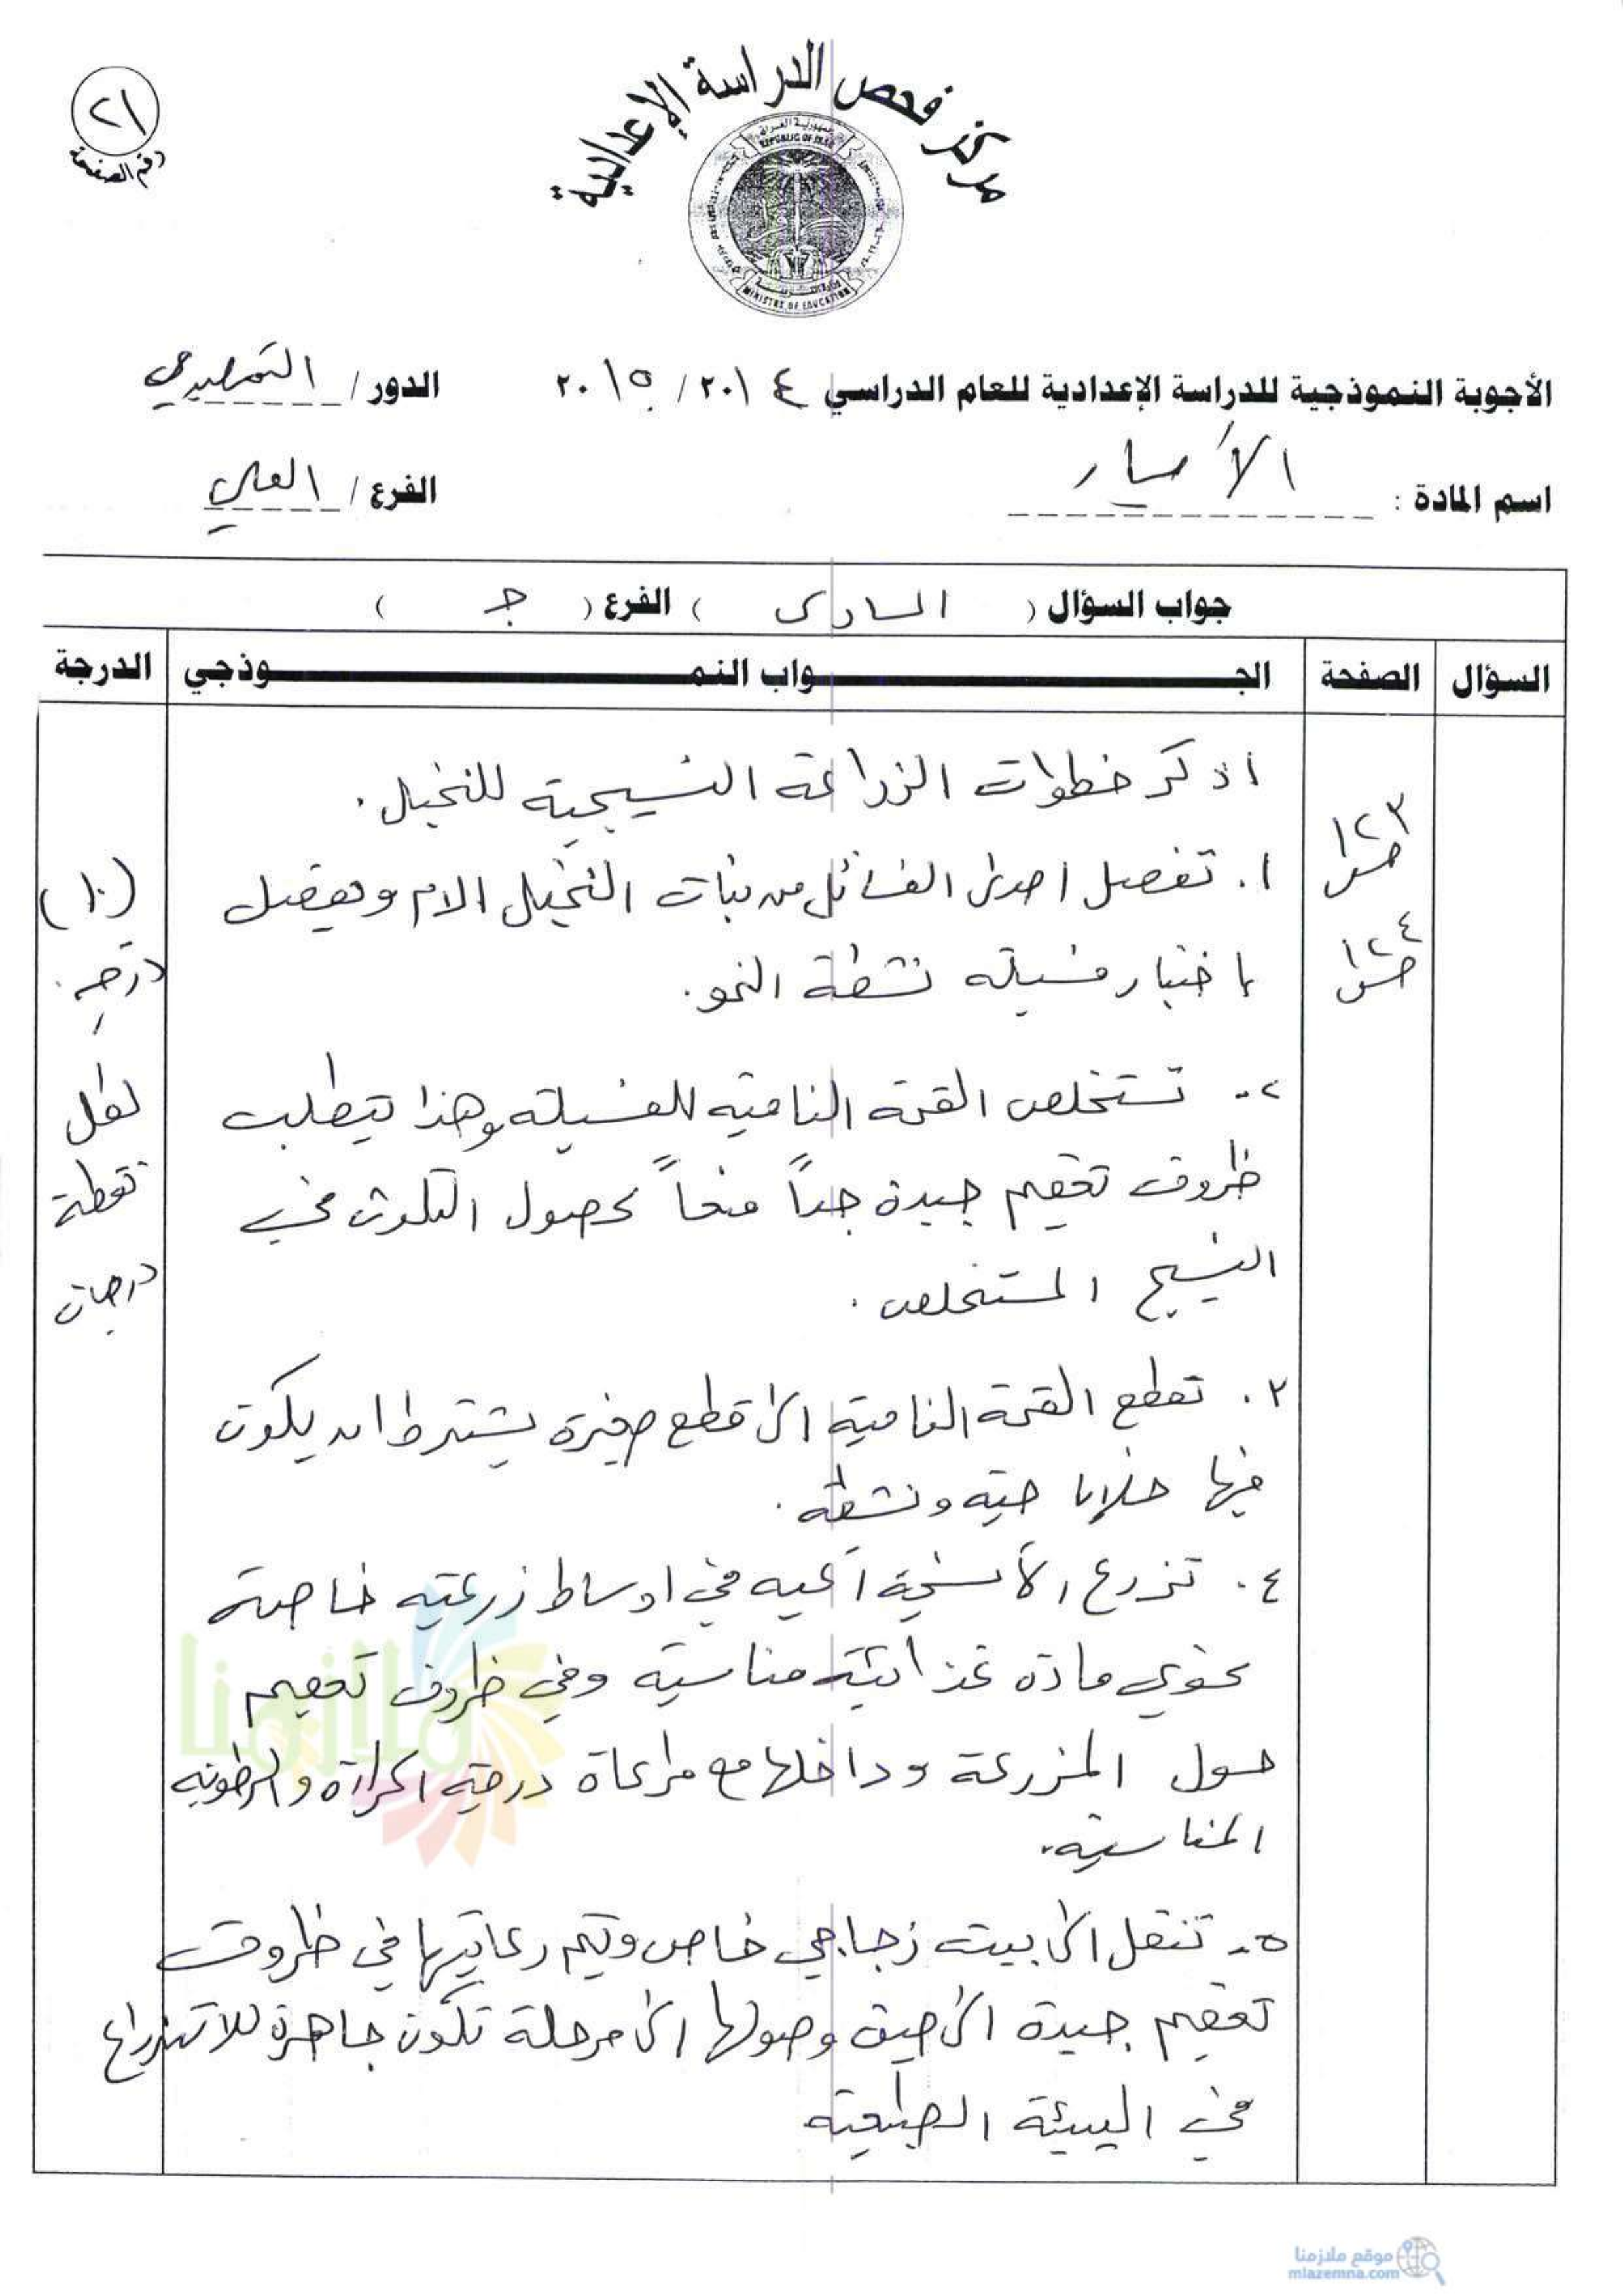 ٢١
رقم الصفحة
مركز فحص الدراسة الإعدادية
جمهورية العراق
REPUBLIC OF IRAQ
MINISTRY OF EDUCATION
الأجوبة النموذجية للدراسة الإعدادية للعام الدراسي ٢٠١٤ / ٢٠١٥ الدور / التمهيدي
اسم المادة : الأحياء الفرع / العلمي
جواب السؤال ( السادس ) الفرع ( جـ )
السؤال الصفحة الجـواب النمـوذجي الدرجة
اذكر خطوات الزراعة النسيجية للنخيل.
١٢٣ ص
١. تفصل احدى الفسائل من نبات النخيل الام ويفضل
(١٠)
١٢٤ ص
باختيار فسيلة نشطة النمو.
درجة
٢- تستخلص القمة النامية للفسيلة وهذا يتطلب
لكل
ظروف تعقيم جيدة جداً منعاً لحصول التلوث في
نقطة
النسيج المستخلص.
درجتان
٣. تقطع القمة النامية الى قطع صغيرة يشترط ان يكون
فيها خلايا حية ونشطة.
٤. تزرع الأنسجة آنية في اوساط زرعية خاصة
تحوي مادة غذائية مناسبة وفي ظروف تعقيم
حول المزرعة وداخلها مع مراعاة درجة الحرارة والرطوبة
المناسبة.
٥- تنقل الى بيت زجاجي خاص وتتم رعايتها في ظروف
تعقيم جيدة الى حين وصولها الى مرحلة تكون جاهزة للاستزراع
في البيئة الطبيعية
ملازمنا
موقع ملازمنا
mlazemna.com